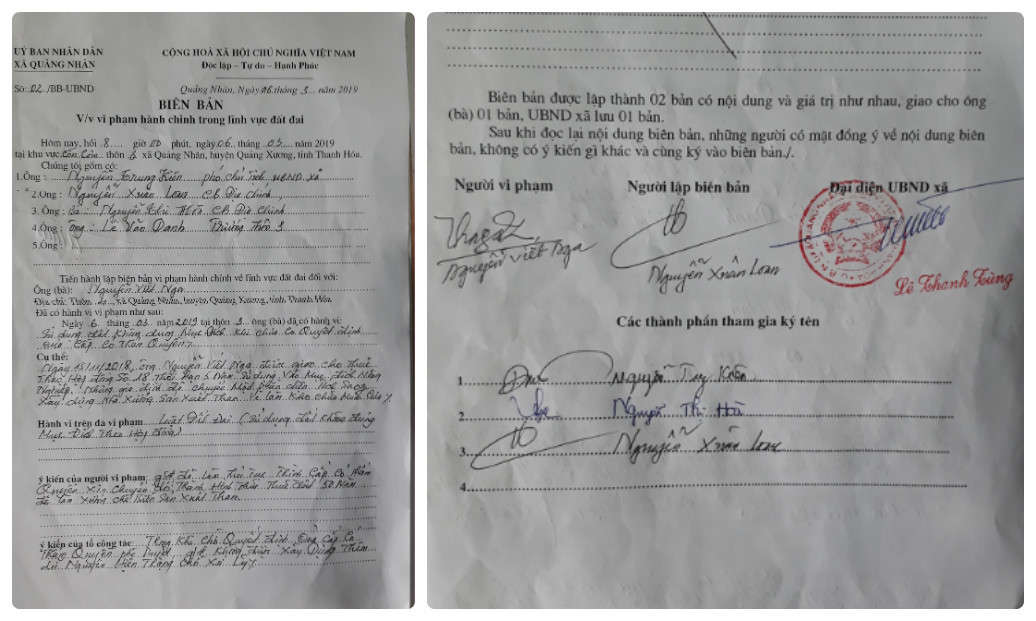 UỶ BAN NHÂN DÂN
XÃ QUẢNG NHÂN
CỘNG HOÀ XÃ HỘI CHỦ NGHĨA VIỆT NAM
Độc lập – Tự do – Hạnh Phúc
Số: 02 /BB-UBND
Quảng Nhân, Ngày 06 tháng 3 năm 2019
BIÊN BẢN
V/v vi phạm hành chính trong lĩnh vực đất đai
Hôm nay, hồi 8 giờ 00 phút, ngày 06 tháng 03 năm 2019
tại khu vực Cồn thôn xã Quảng Nhân, huyện Quảng Xương, tỉnh Thanh Hóa.
Chúng tôi gồm có:
1.Ông : Nguyễn Trung Kiên phó chủ tịch UBND xã
2.Ông : Nguyễn Xuân Loan CB Địa chính
3. Ông : Bà Nguyễn Thị Hoà CB Địa Chính
4.Ông : ông Lê Văn Danh Trưởng thôn 3
5.Ông :
Tiến hành lập biên bản vi phạm hành chính về lĩnh vực đất đai đối với:
Ông (bà): Nguyễn Viết Nga
Địa chỉ: Thôn xã Quảng Nhân, huyện Quảng Xương, tỉnh Thanh Hóa.
Đã có hành vi vi phạm như sau:
Ngày 6 tháng 03 năm 2019 tại thôn 3 ông (bà) đã có hành vi:
Sử dụng đất không đúng mục đích khi chưa có Quyết định
của Cấp có Thẩm Quyền
Cụ thể:
Ngày 15/11/2018, ông Nguyễn Viết Nga được giao cho thuê
Thầu Hợp đồng Số 18 Thời hạn 5 năm sử dụng vào mục đích nông
nghiệp, Nhưng gia đình đã chuyển
xây dựng Nhà Xưởng Sản Xuất Than
Hành vi trên đã vi phạm Luật Đất Đai (Sử dụng đất không đúng
Mục Đích Theo Hợp đồng)
ý kiến của người vi phạm: gđ đã làm thủ tục trình cấp có thẩm
Quyền xin chuyển đổi thuê đất 50 năm
Sản Xuất Than
ý kiến của tổ công tác Trong khi chờ Quyết định của Cấp có
Thẩm Quyền phê duyệt gđ không được xây dựng thêm
để Nguyên hiện Trạng chờ xử lý
Biên bản được lập thành 02 bản có nội dung và giá trị như nhau, giao cho ông
(bà) 01 bản, UBND xã lưu 01 bản.
Sau khi đọc lại nội dung biên bản, những người có mặt đồng ý về nội dung biên
bản, không có ý kiến gì khác và cùng ký vào biên bản./.
Người vi phạm
Người lập biên bản
Đại diện UBND xã
Nguyễn Viết Nga
Nguyễn Xuân Loan
Lê Thanh Tùng
Các thành phần tham gia ký tên
1 Nguyễn Kiên
2 Nguyễn Thị Hoà
3 Nguyễn Xuân Loan
4